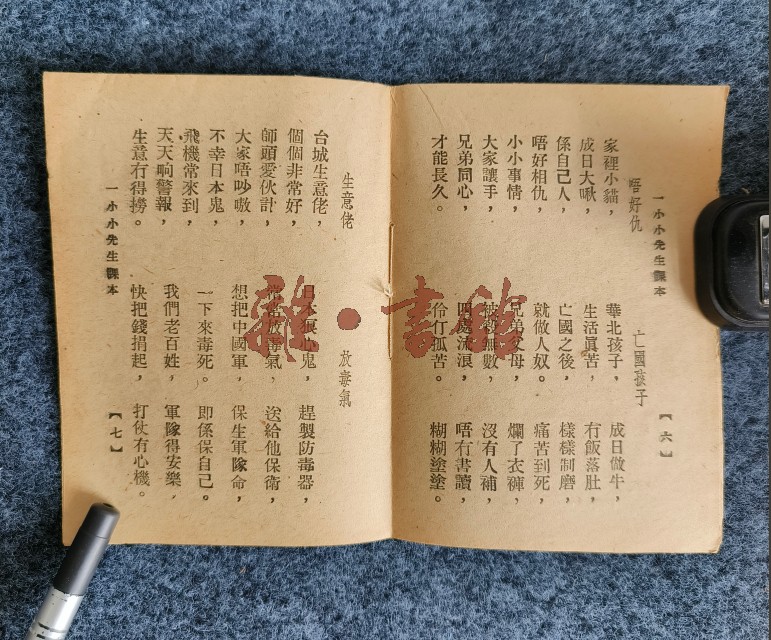 一小小先生課本
【六】
唔好仇
家裡小貓，
成日大啾，
係自己人，
唔好相仇，
小小事情，
大家讓手，
兄弟同心，
才能長久。
亡國孩子
華北孩子，
生活眞苦，
亡國之後，
就做人奴。
兄弟父母，
被殺無數，
四處流浪，
伶仃孤苦。
成日做牛，
冇飯落肚，
樣樣制磨，
痛苦到死，
爛了衣褲，
沒有人補，
唔冇書讀，
糊糊塗塗。
生意佬
台城生意佬，
個個非常好，
師頭愛伙計，
大家唔吵嗷，
不幸日本鬼，
飛機常來到，
天天响警報，
生意冇得撈。
放毒氣
日本狠心鬼，
常常放毒氣，
想把中國軍，
一下來毒死。
我們老百姓，
快把錢捐起，
趕製防毒器，
送給他保衛，
保生軍隊命，
即係保自己。
軍隊得安樂，
打仗有心機。
一小小先生課本
【七】
雜·書舘